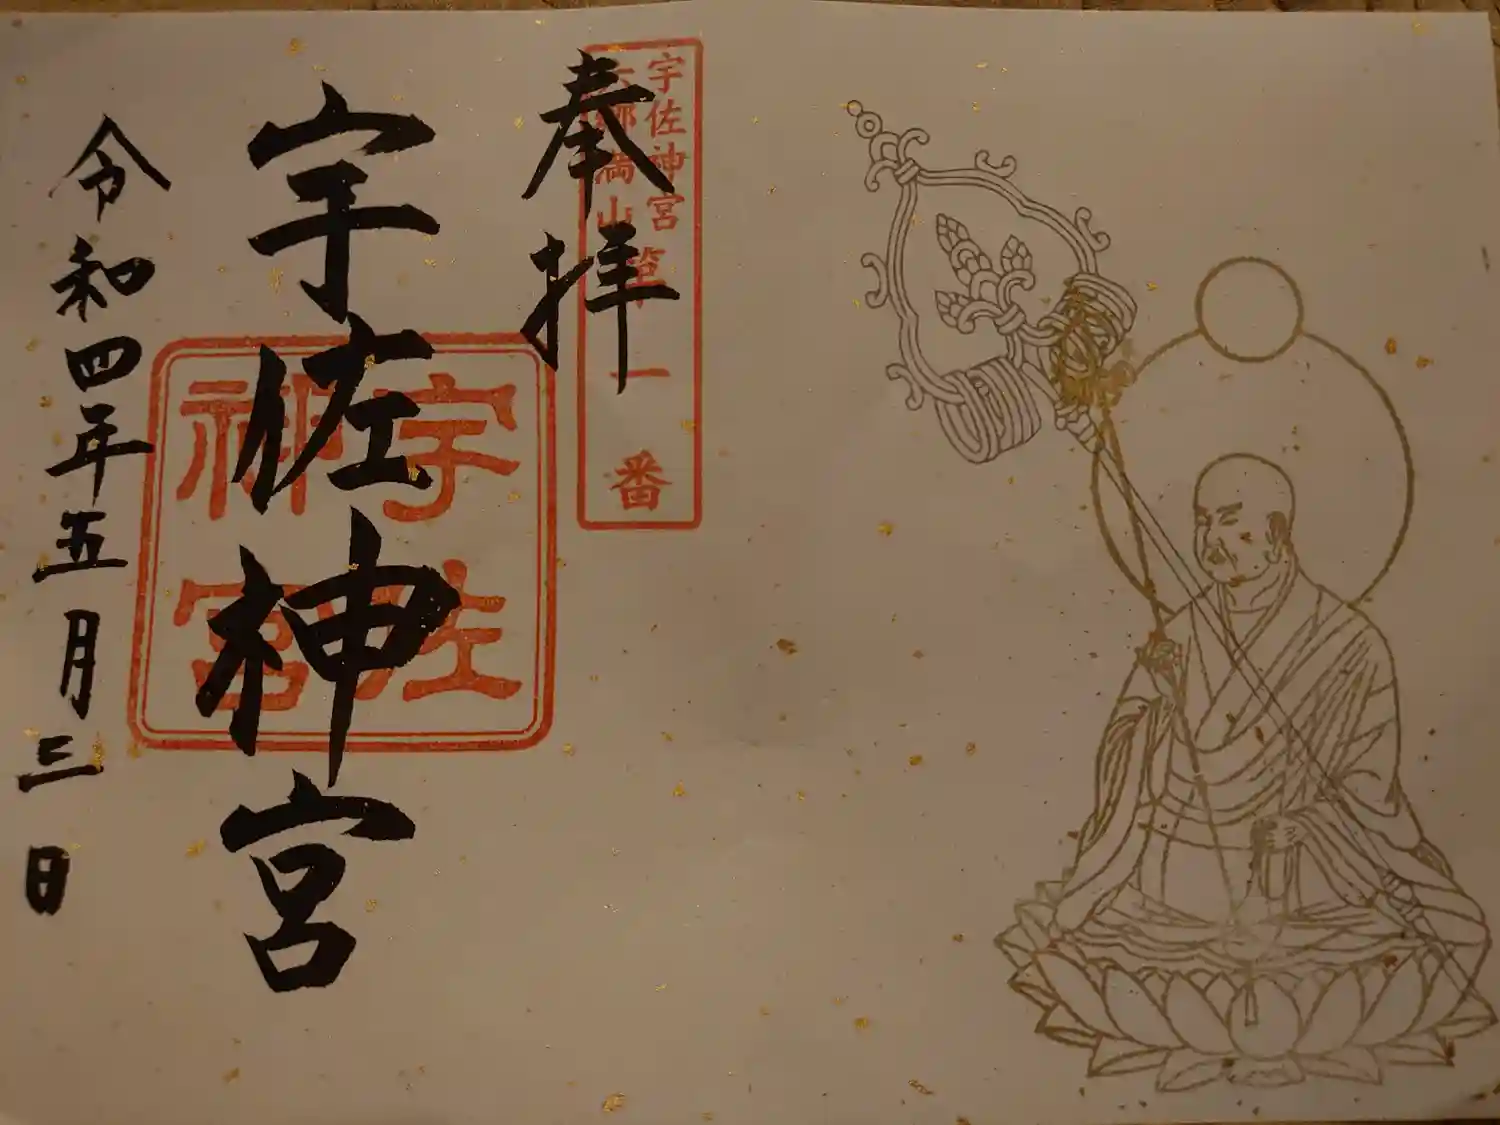 奉拝
宇佐神宮
六郷満山 第一番
宇佐神宮
宇佐
神宮
令和四年五月三日